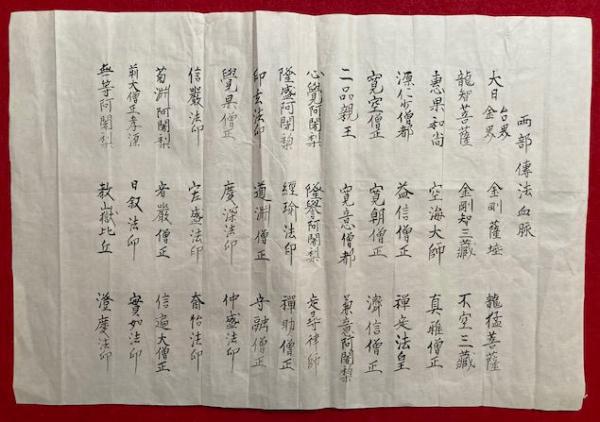 両部傳法血脈
大日 金界 台界 金剛薩埵 龍猛菩薩
龍智菩薩 金剛智三藏 不空三藏
惠果和尚 空海大師 真雅僧正
源仁少僧都 益信僧正 禅定法皇
寛空僧正 寛朝僧正 濟信僧正
二品親王 寛意僧都 兼意阿闍梨
心覺阿闍梨 隆譽阿闍梨 定尋律師
隆盛阿闍梨 經瑜法印 禅助僧正
印玄法印 道淵僧正 守融僧正
覺果僧正 慶深法印 仲盛法印
信嚴法印 定盛法印 奝怡法印
菊淵阿闍梨 考嚴僧正 信遍大僧正
前大僧正孝源 日叙法印 實如法印
無等阿闍梨 教嶽比丘 澄慶法印